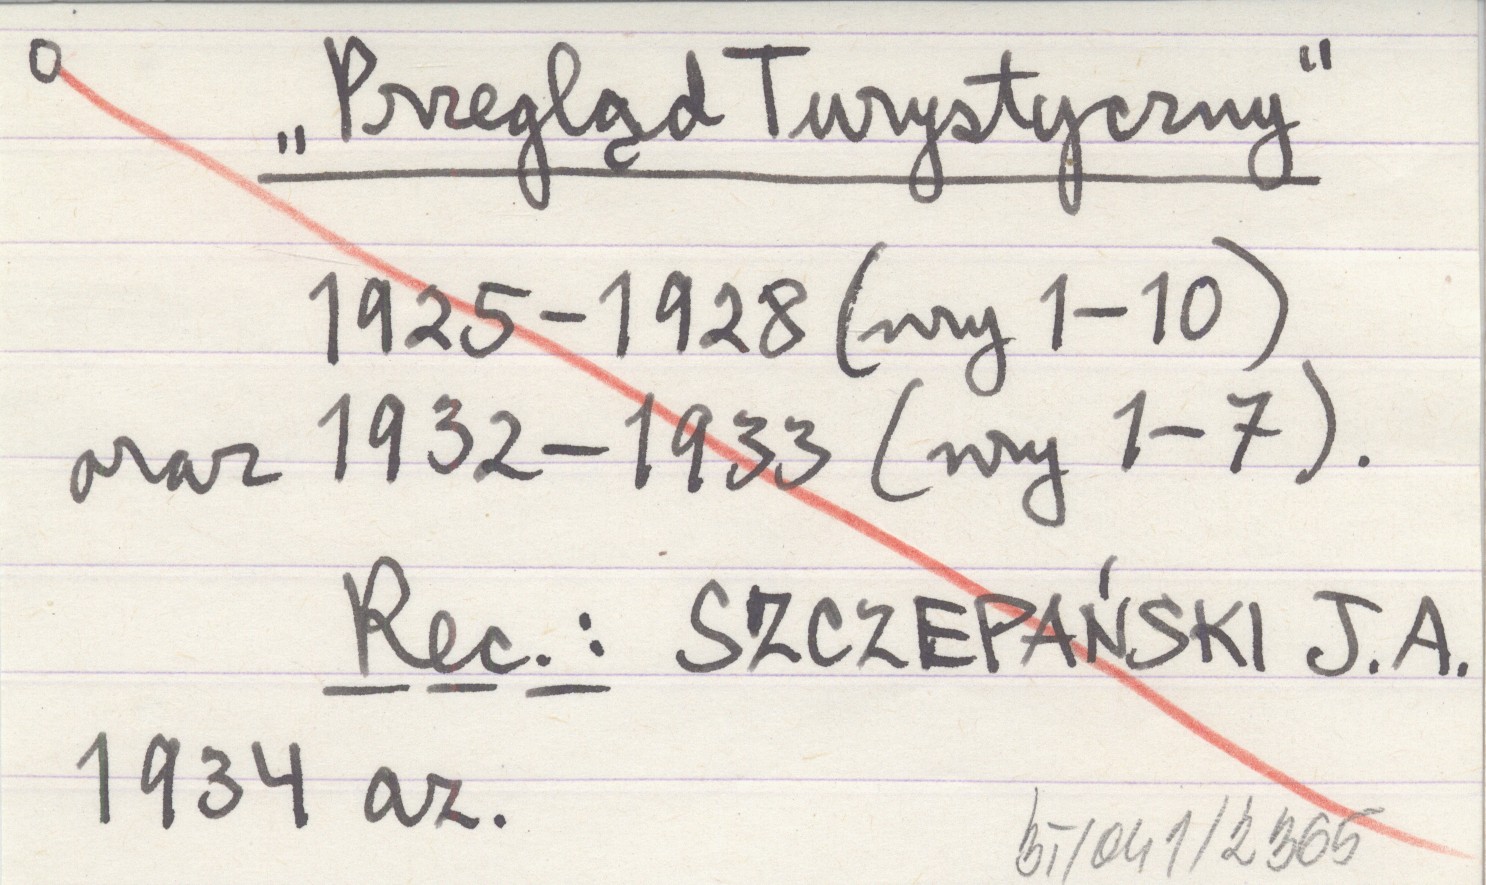 O
„Przegląd Turystyczny"
1925-1928 (nry 1-10)
oraz 1932-1933 (nry 1-7).
Rec.: SZCZEPAŃSKI J.A.
1934 az.